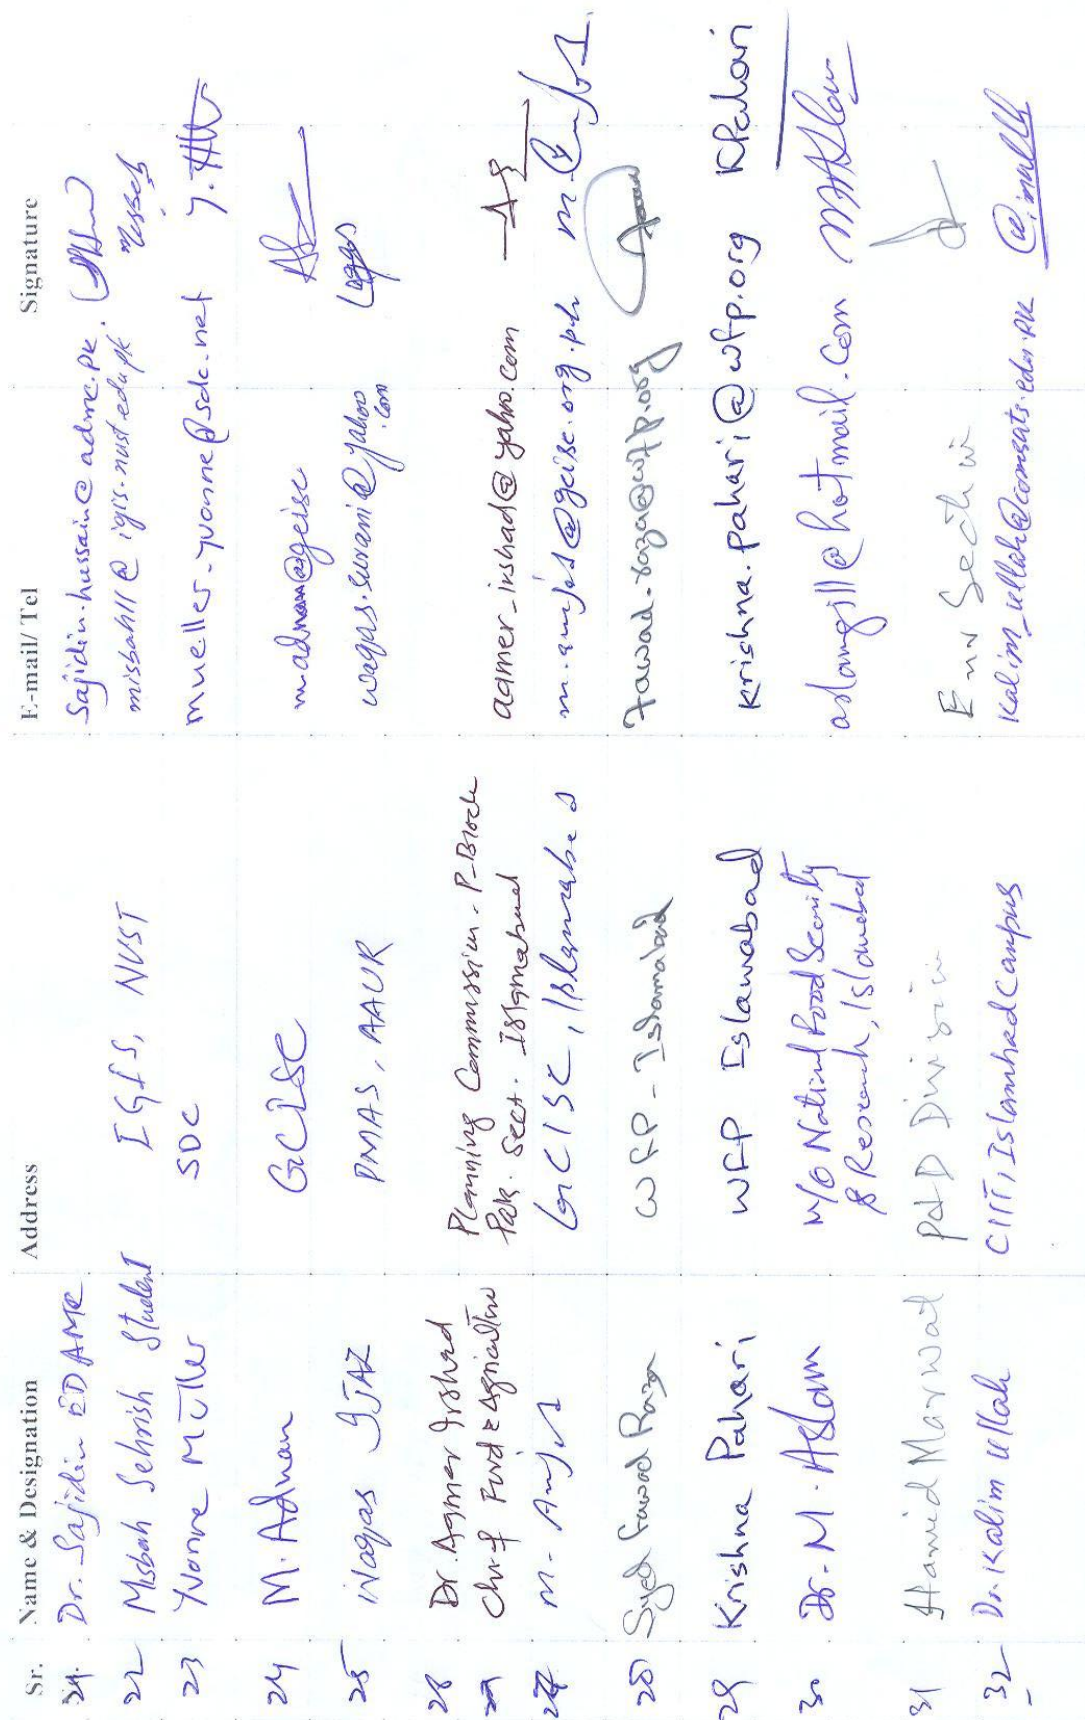 Sr. Name & Designation Address E-mail/ Tel Signature
21. Dr. Sajidin ED AMR Sajidin.hussain@admc.pk.
22 Misbah Sehrish Student IGIS, NUST misbah11@igis.nust.edu.pk
23 Yvonne Müller SDC mueller-yvonne@sdc.net
24 M. Adnan GCISC m.adnan@gcisc
25 Waqas IJAZ PMAS, AAUR waqas.surani@yahoo.com
26 Dr. Aamer Irshad Planning Commission. P-Block aamer_irshad@yahoo.com
Chief Food & Agriculture Pak. Sectt. Islamabad
27 M. Amjad GCISC, Islamabad m.amjad@gcisc.org.pk
28 Syed Fawad Raza WFP - Islamabad fawad.raza@wfp.org
29 Krishna Pahari WFP Islamabad krishna.pahari@wfp.org KPahari
30 Dr. M. Aslam M/O National Food Security aslamgill@hotmail.com MAslam
& Research, Islamabad
31 Hamid Marwat P&D Division Env Section
32 Dr. Kalim Ullah CIIT, Islamabad Campus Kalim_ullah@comsats.edu.pk